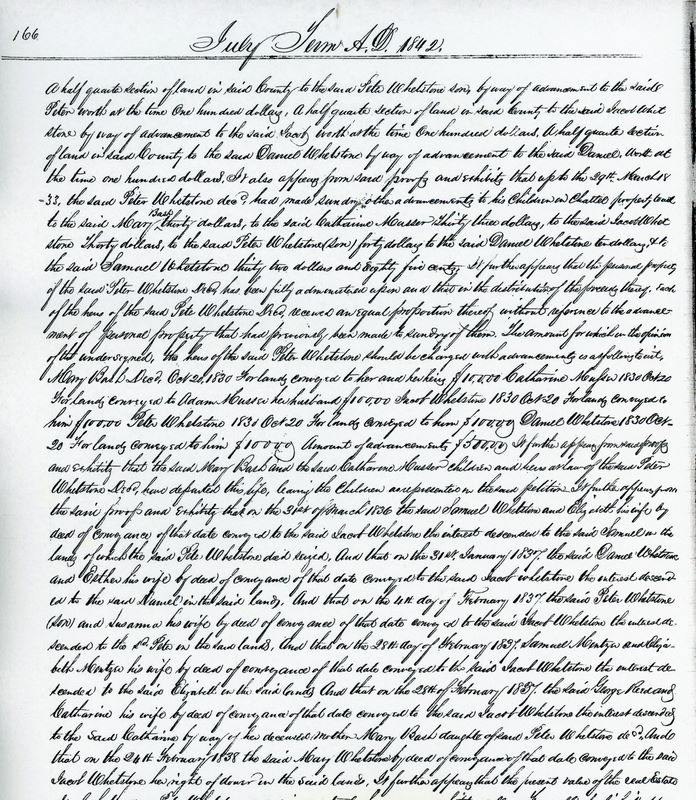 166
July Term A.D. 1842.
A half quarte section of land in said County to the said Pete Whetstone son, by way of advancement to the said
Peter worth at the time One hundred dollars, A half quarte section of land in said County to the said Jacob Whet
stone by way of advancement to the said Jacob worth at the time One hundred dollars. A half quarte section
of land in said County to the said Daniel Whetstone by way of advancement to the said Daniel, worth at
the time one hundred dollars. It also appears from said proofs and exhibits that up to the 29th March 18
-33, the said Peter Whetstone decd. had made sundry othe advancements to his Children in Chattel property, to
to the said Mary Bash thirty dollars, to the said Catharine Musser Thirty three dollars, to the said Jacob Whet
stone Thirty dollars, to the said Peter Whetstone (Son) forty dollars to the said Daniel Whetstone ten dollars, & to
the said Samuel Whetstone thirty two dollars and Eighty five cents. It further appears that the personal property
of the said Peter Whetstone Decd. has been fully administered upon and that in the distribution of the proceeds thereof, each
of the heirs of the said Pete Whetstone Decd. received an equal proportion thereof without reference to the advance
ment of personal property that had previously been made to sundry of them. The amount for which in the opinion
of the undersigned, the heirs of the said Peter Whetstone should be charged with advancements is as follows to wit,
Mary Bash Decd. Oct 20, 1830 For lands conveyed to her and her heirs $100,00 Catharine Musser 1830 Oct 20
For lands conveyed to Adam Musser her husband $100,00 Jacob Whetstone 1830 Oct 20 For lands conveyed to
him $100,00 Peter Whetstone 1830 Oct 20 For lands conveyed to him $100,00 Daniel Whetstone 1830 Oct-
20 For lands conveyed to him $100,00 Amount of advancements $500,00 It further appears from said proofs
and exhibits that the said Mary Bash and the said Catharine Musser children and heirs at law of the said Peter
Whetstone Decd. have departed this life, leaving the Children as represented in the said petition It further appears from
the said proofs and Exhibits that on the 21st of March 1836 the said Samuel Whetstone and Elizabeth his wife by
deed of conveyance of that date conveyed to the said Jacob Whetstone the interest descended to the said Samuel in the
lands of which the said Pete Whetstone died seized, And that on the 31st January 1837. the said Daniel Whetstone
and Esther his wife by deed of conveyance of that date conveyed to the said Jacob whetstone the interest descend
ed to the said Daniel in the said lands, And that on the 4th day of February 1837. the said Peter Whetstone
(Son) and Susanna his wife by deed of conveyance of that date conveyed to the said Jacob Whetstone the interest de-
scended to the sd. Pete in the said lands, and that on the 28th day of February 1837. Samuel Mentzer and Eliza-
beth Mentzer his wife by deed of conveyance of that date conveyed to the said Jacob Whetstone the interest de-
scended to the said Elizabeth in the said lands And that on the 28th of February 1837. the said George Reed and
Catharine his wife by deed of conveyance of that date conveyed to the said Jacob Whetstone the interest descended
to the said Catharine by way of her deceased mother Mary Bash daughter of said Peter Whetstone decd. And
that on the 24th February 1838 the said Mary Whetstone by deed of conveyance of that date conveyed to the said
Jacob Whetstone her right of dower in the said lands, It further appears that the present value of the real Estate